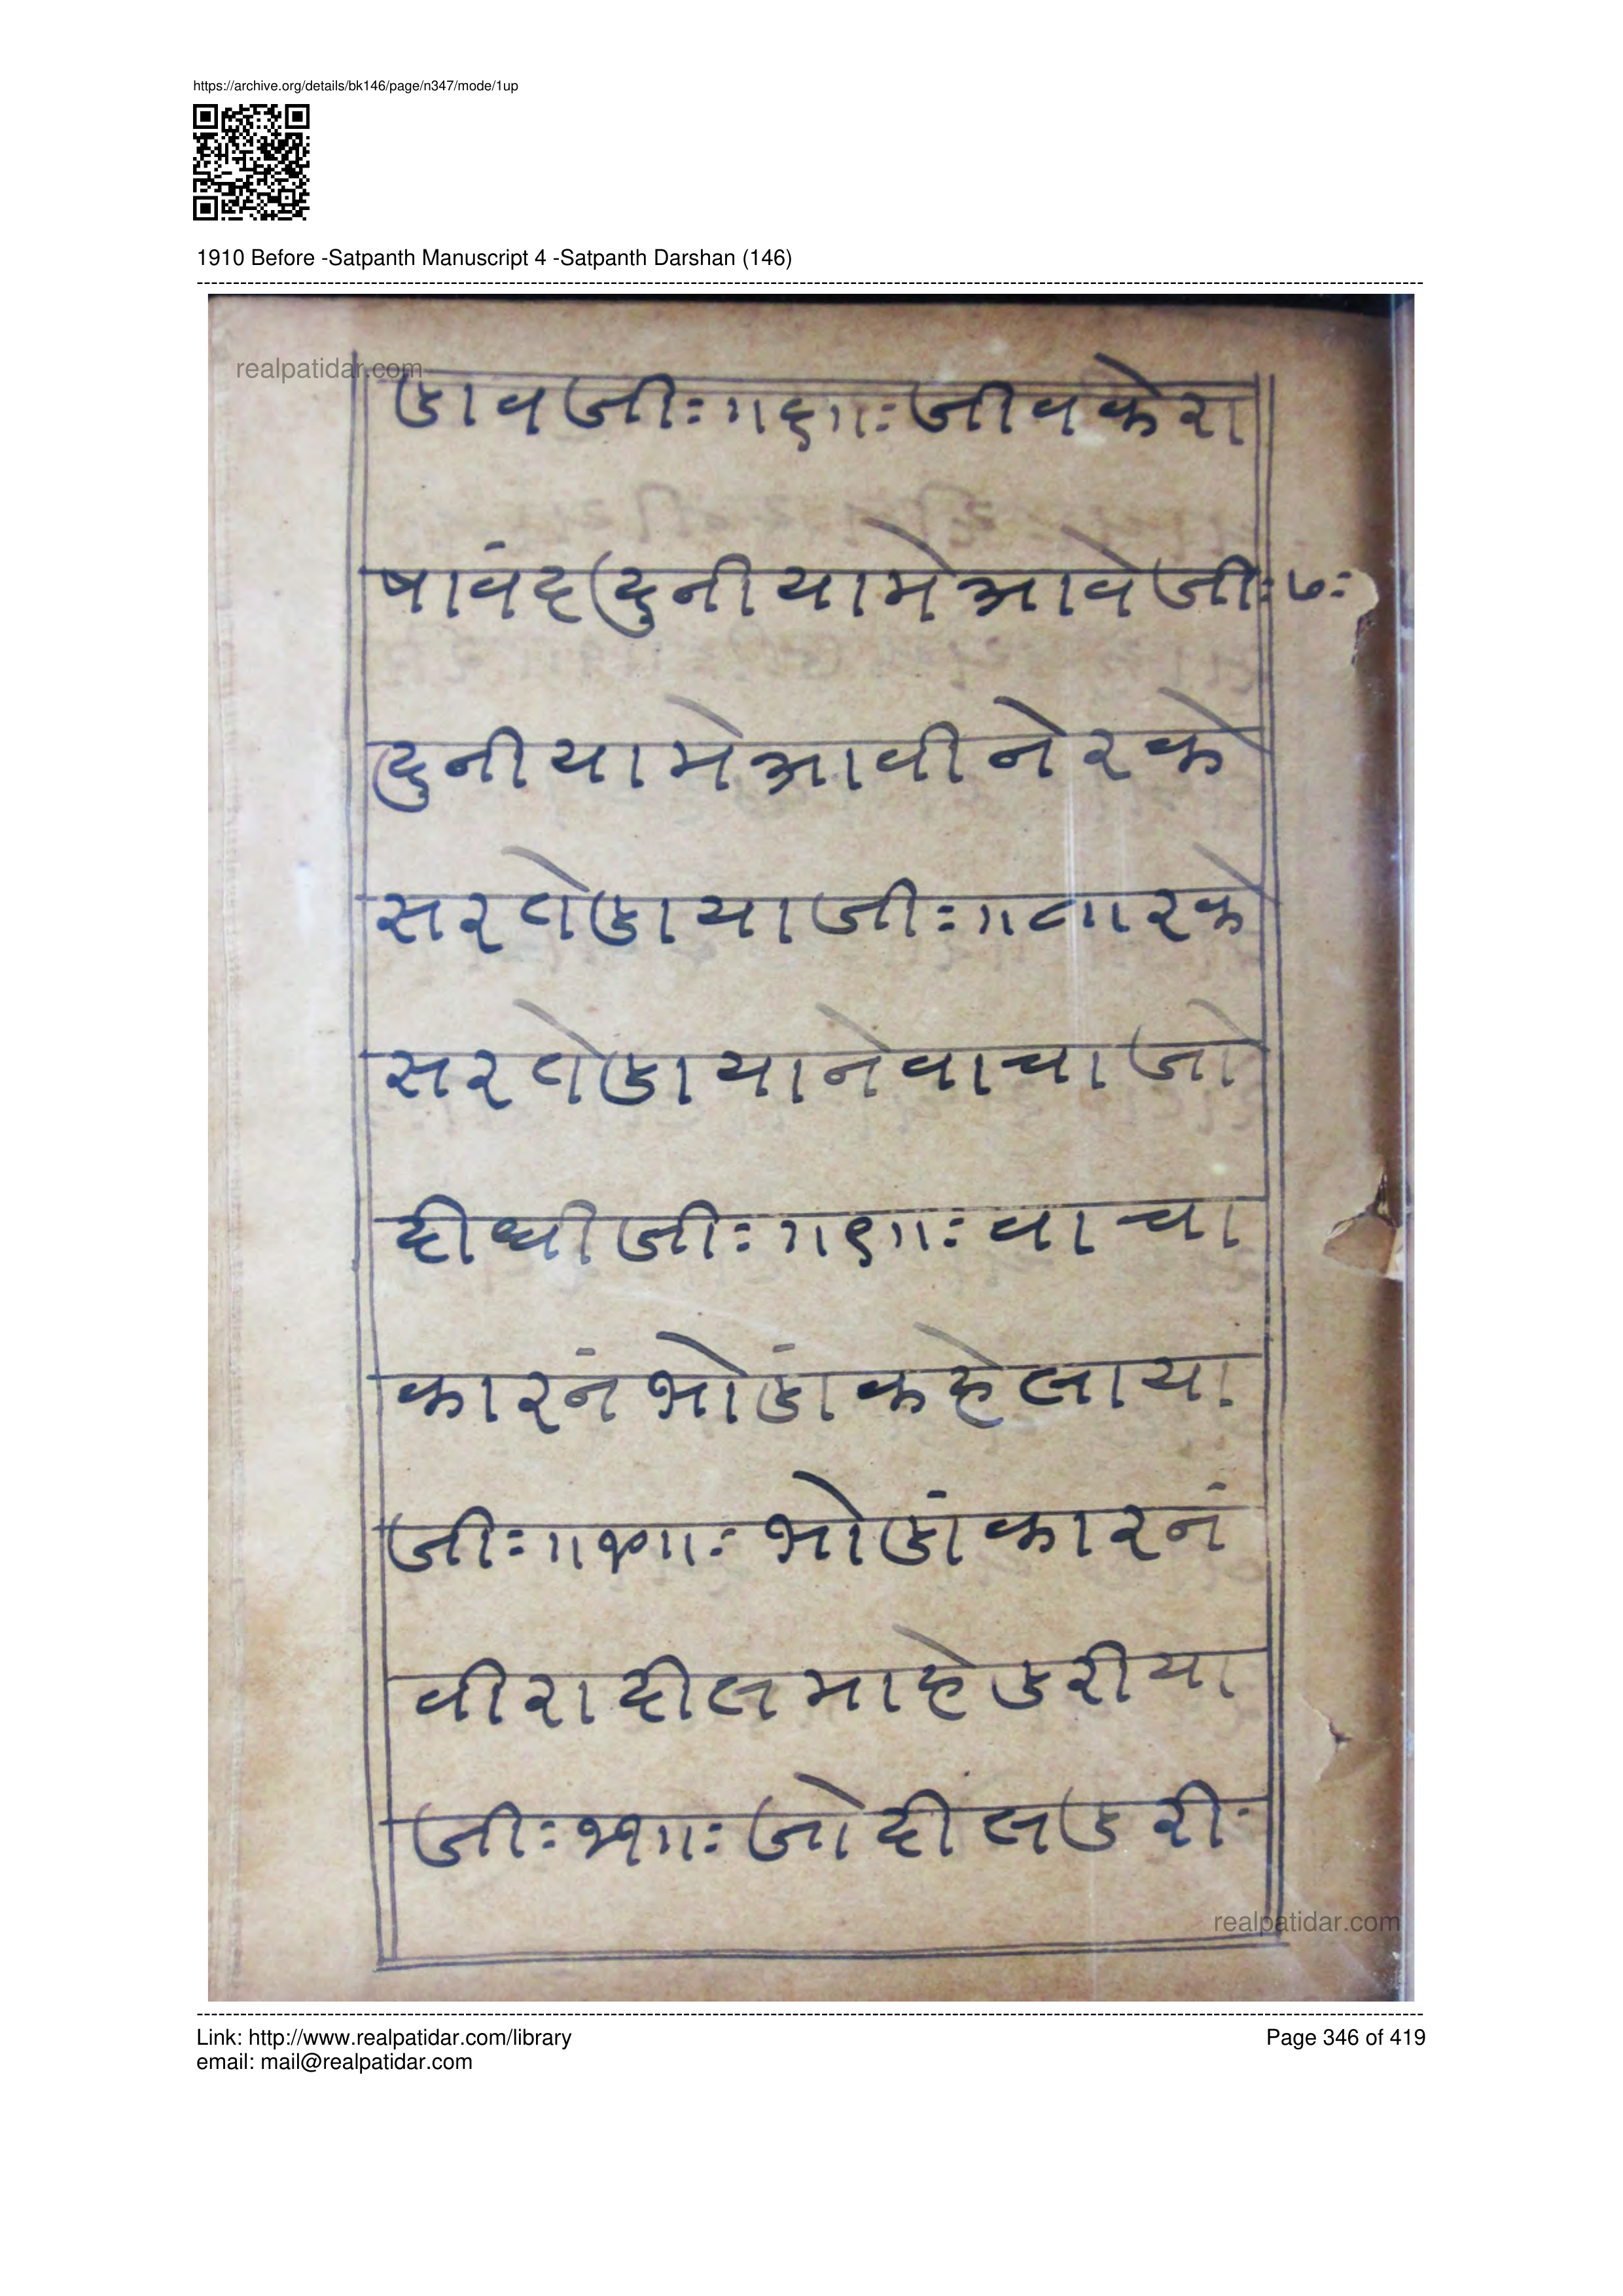 https://archive.org/details/bk146/page/n347/mode/1up
1910 Before -Satpanth Manuscript 4 -Satpanth Darshan (146)
realpatidar.com
डावजीः॥६॥ः जीवकेरा
षावंद दुनीयामे आवे जीः७ः
दुनीयामे आवीने रके
सर वोडाया जीः॥८॥ रके
सर वोडायाने वाचा जो
दीधी जीः॥९॥ः वाचा
कारनं भोडां कहेलाया
जीः॥१०॥ः भोडां कारनं
वीरा दील माहे डरीया
जीः११॥ः जो दील डरी
realpatidar.com
Link: http://www.realpatidar.com/library
Page 346 of 419
email: mail@realpatidar.com